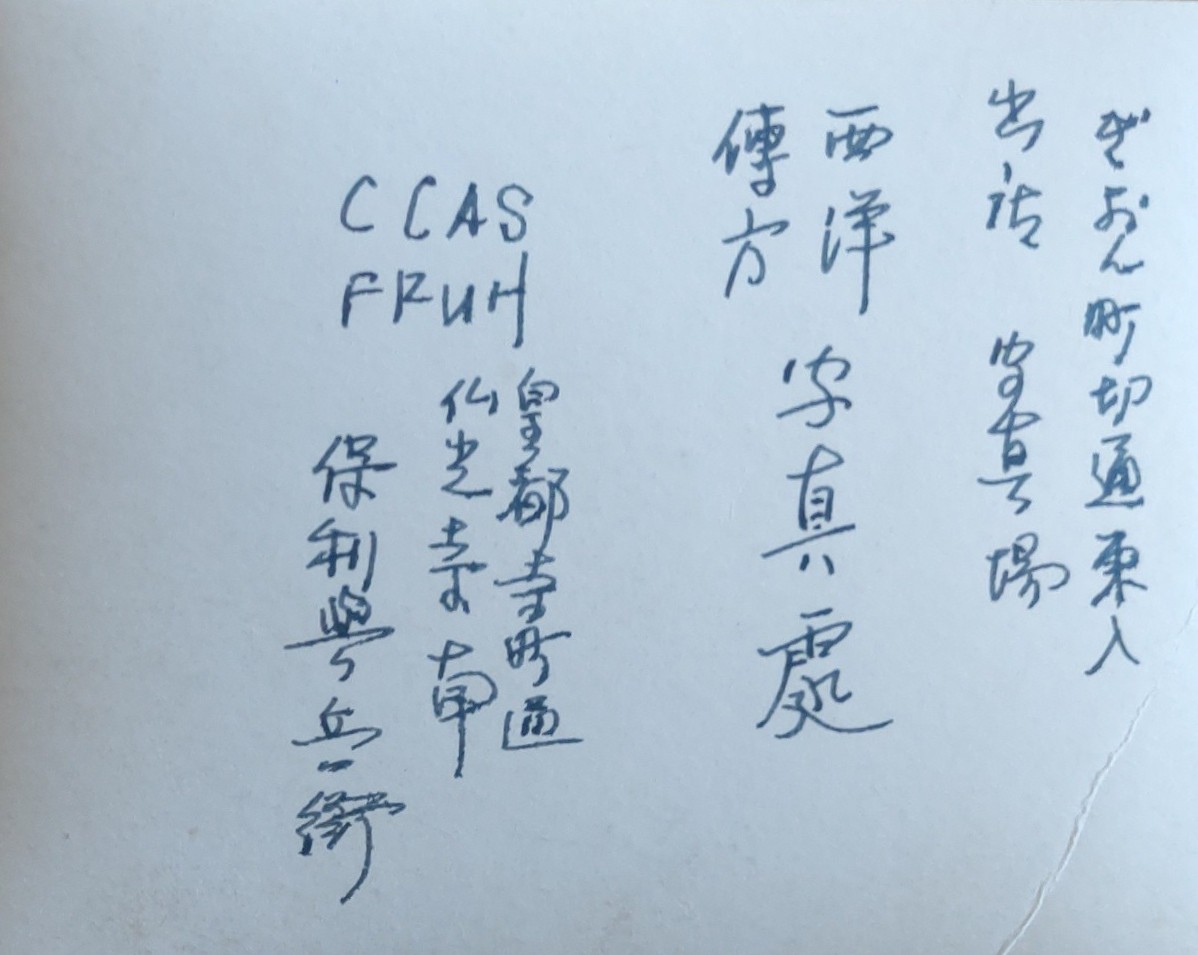 ぎおん町切通東入
出店 写真場
西洋
傳方
写真處
CCAS
FFUH
皇都寺町通
仏光寺南
保利與兵衛